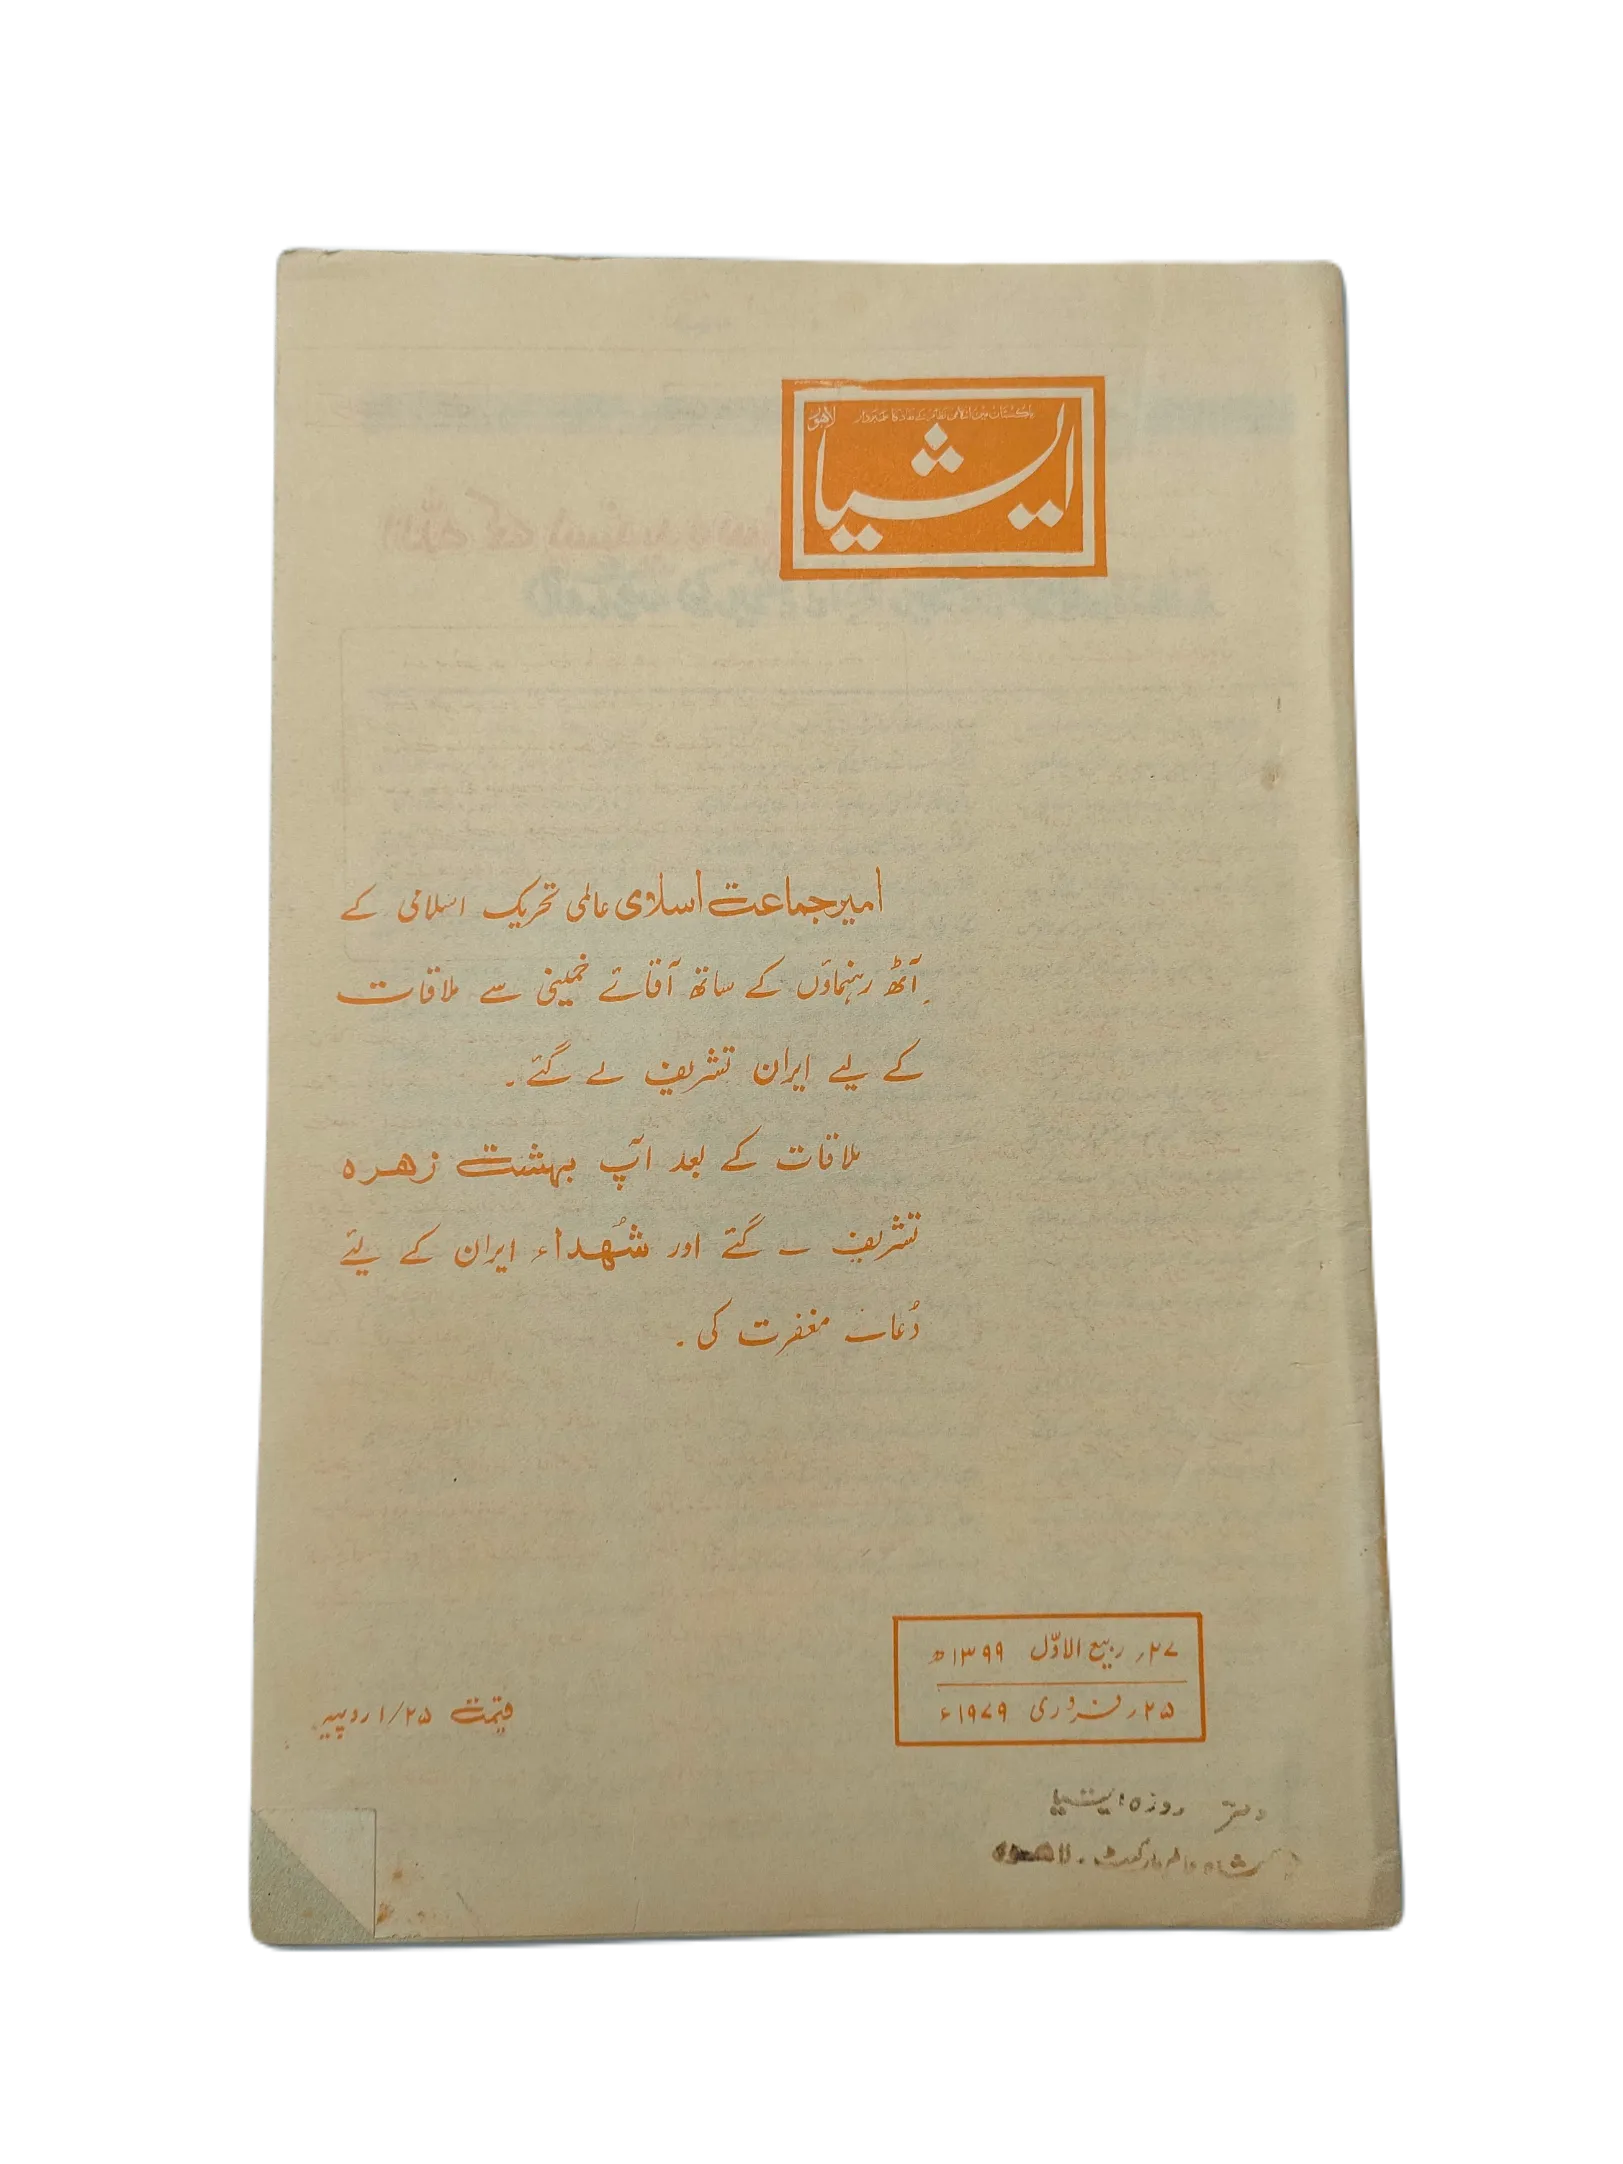 پاکستان میں اسلامی نظام کے نفاذ کا علمبردار
لاہور
ایشیا
امیر جماعت اسلامی عالمی تحریک اسلامی کے
آٹھ رہنماؤں کے ساتھ آقائے خمینی سے ملاقات
کے لیے ایران تشریف لے گئے۔
ملاقات کے بعد آپ بہشت زھرہ
تشریف لے گئے اور شُھداء ایران کے لیئے
دُعائے مغفرت کی۔
۲۷ ربیع الاوّل ۱۳۹۹ھ
۲۵ فروری ۱۹۷۹ء
قیمت ۱/۲۵ روپیہ
دفتر روزہ ایشیا
شاہ عالم مارکیٹ۔ لاھور